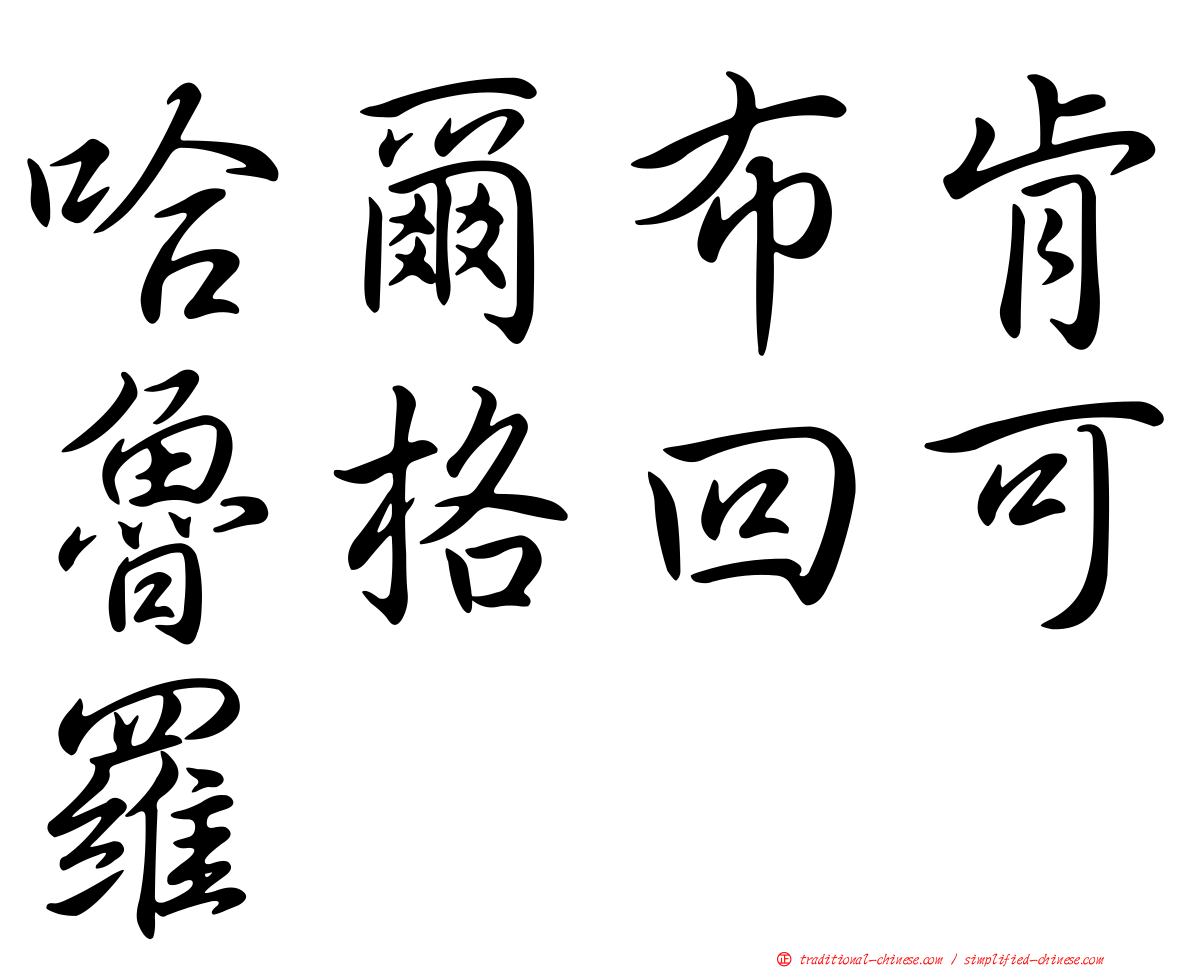 哈爾布肯
魯格回可
羅
㊣ traditional-chinese.com / simplified-chinese.com